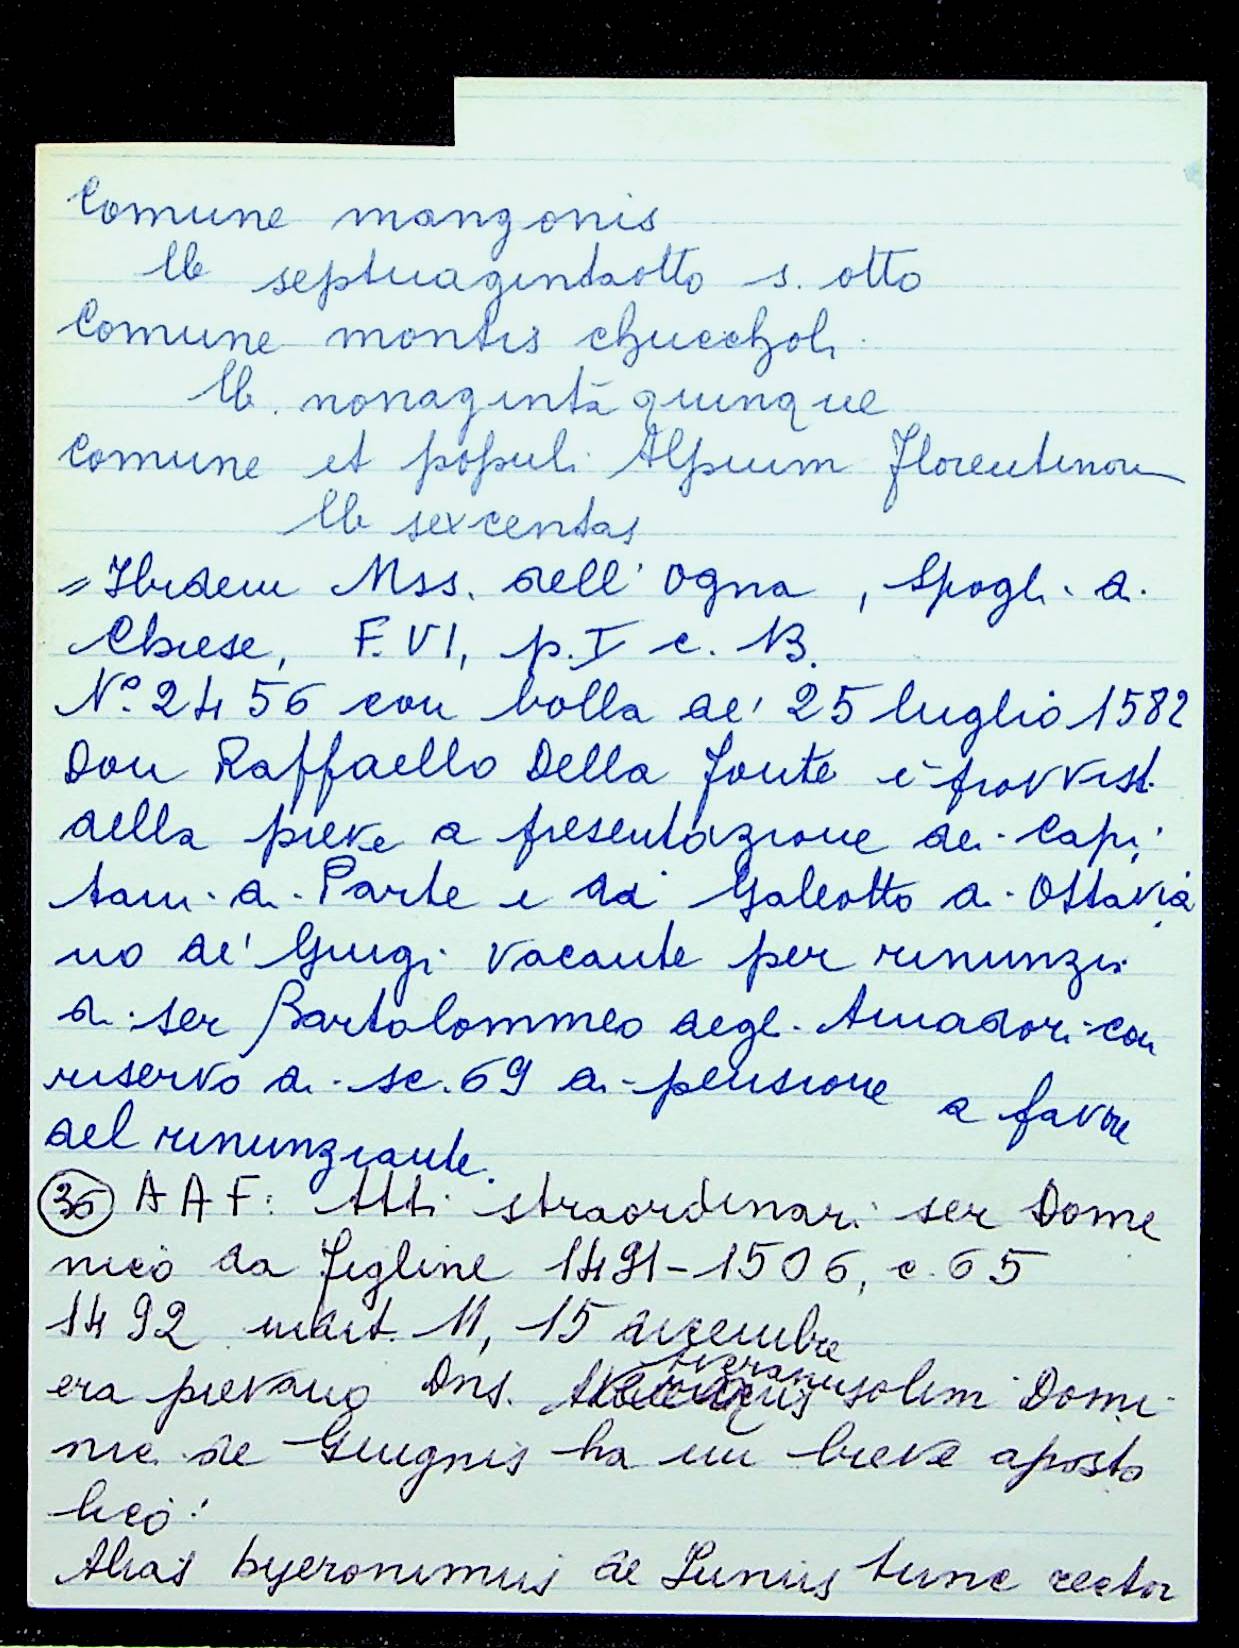 Comune mangonis
lb septuagintaotto s. otto
Comune montis chucchol.
lb. nonaginta quinque
Comune et populi Alpium Florentinor
lb sexcentas
= Ibidem Mss. dell'Ogna, Spogli di
Chiese, F. VI, p. I c. 13.
N° 2456 con bolla de' 25 luglio 1582
Don Raffaello Della Fonte è provvist.
della pieve a presentazione dei Capi
tani di Parte e di Galeotto di Ottavia
no de' Giugi vacante per rinunzia
di ser Bartolommeo degli Amadori con
riservo di sc. 69 di pensione a favore
del rinunziante.
36 AAF: Atti straordinari ser Dome
nico da Figline 1491-1506, c. 65
1492 indict. 11, 15 dicembre
era pievano Dns. Averanus olim Domi
nici de Giugnis ha un breve aposto
lico:
Alias hyeronimus de Juniis tunc rector